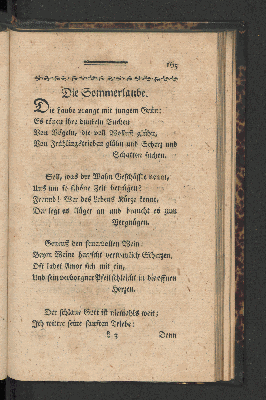 165
Die Sommerlaube.
Die Laube prangt mit jungem Grün:
Es tönen ihre dunkeln Buchen
Von Vögeln, die voll Wollust glühn,
Von Frühlingstrieben glühn und Scherz und
Schatten suchen.
Soll, was der Wahn Geschäffte nennt,
Uns um so schöne Zeit betrügen?
Freund! Wer des Lebens Kürze kennt,
Der legt es klüger an und braucht es zum
Vergnügen.
Geneuß den feuervollen Wein:
Beym Weine herrscht vertraulich Scherzen,
Oft ladet Amor sich mit ein,
Und sein verborgner Pfeil schleicht in die offnen
Herzen.
Der schlaue Gott ist niemahls weit;
Ich wittre seine sanften Triebe:
L 3 Denn